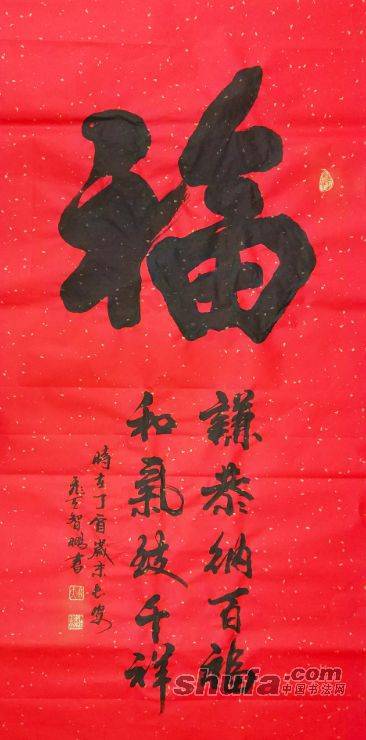 福
謙恭納百福
和氣致千祥
時在丁酉歲末長安
智鵬書
shufa.com
中国书法网